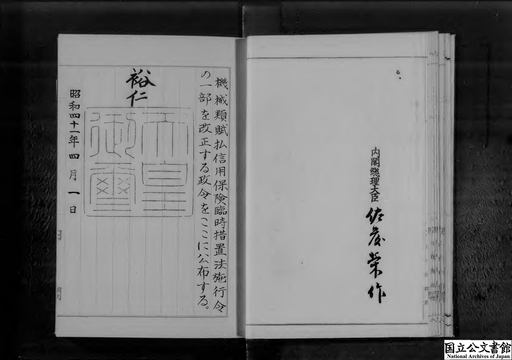 機械類賦払信用保険臨時措置法施行令
の一部を改正する政令をここに公布する。
裕仁
天皇
御璽
昭和四十一年四月一日
内閣総理大臣
佐藤榮作
国立公文書館
National Archives of Japan